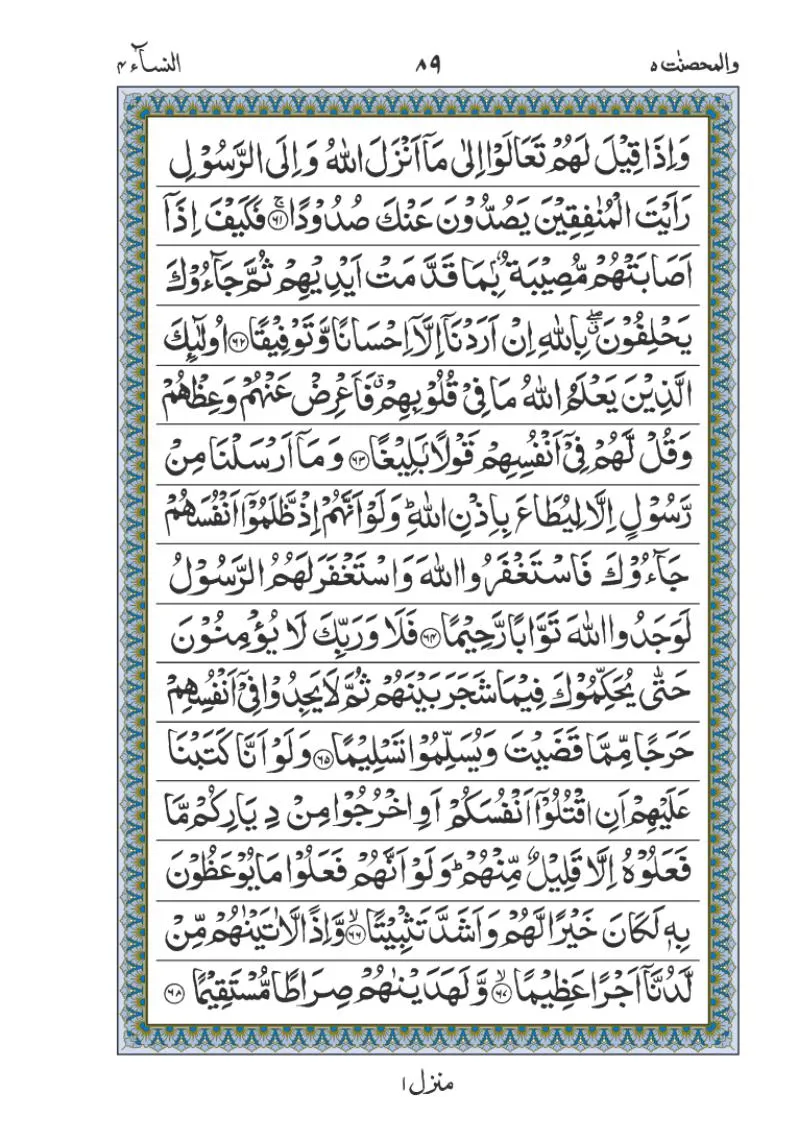 والمحصنٰت ٥
٨٩
النسآء ٤
وَاِذَا قِيْلَ لَهُمْ تَعَالَوْا اِلٰى مَاۤ اَنْزَلَ اللّٰهُ وَ اِلَى الرَّسُوْلِ
رَاَيْتَ الْمُنٰفِقِيْنَ يَصُدُّوْنَ عَنْكَ صُدُوْدًا ۚ‏﴿۶۱﴾ فَكَيْفَ اِذَاۤ
اَصَابَتْهُمْ مُّصِيْبَةٌ ۢ بِمَا قَدَّمَتْ اَيْدِيْهِمْ ثُمَّ جَآءُوْكَ
يَحْلِفُوْنَ ۖۗ بِاللّٰهِ اِنْ اَرَدْنَاۤ اِلَّاۤ اِحْسَانًا وَّ تَوْفِيْقًا ﴿۶۲﴾ اُولٰٓئِكَ
الَّذِيْنَ يَعْلَمُ اللّٰهُ مَا فِىْ قُلُوْبِهِمْ ۗ فَاَعْرِضْ عَنْهُمْ وَعِظْهُمْ
وَقُلْ لَّهُمْ فِىْۤ اَنْفُسِهِمْ قَوْلًاۢ بَلِيْغًا ﴿۶۳﴾ وَمَاۤ اَرْسَلْنَا مِنْ
رَّسُوْلٍ اِلَّا لِيُطَاعَ بِاِذْنِ اللّٰهِ ؕ وَلَوْ اَنَّهُمْ اِذْ ظَّلَمُوْۤا اَنْفُسَهُمْ
جَآءُوْكَ فَاسْتَغْفَرُوا اللّٰهَ وَاسْتَغْفَرَ لَهُمُ الرَّسُوْلُ
لَوَجَدُوا اللّٰهَ تَوَّابًا رَّحِيْمًا ﴿۶۴﴾ فَلَا وَرَبِّكَ لَا يُؤْمِنُوْنَ
حَتّٰى يُحَكِّمُوْكَ فِيْمَا شَجَرَ بَيْنَهُمْ ثُمَّ لَا يَجِدُوْا فِىْۤ اَنْفُسِهِمْ
حَرَجًا مِّمَّا قَضَيْتَ وَيُسَلِّمُوْا تَسْلِيْمًا ﴿۶۵﴾ وَلَوْ اَنَّا كَتَبْنَا
عَلَيْهِمْ اَنِ اقْتُلُوْۤا اَنْفُسَكُمْ اَوِ اخْرُجُوْا مِنْ دِيَارِكُمْ مَّا
فَعَلُوْهُ اِلَّا قَلِيْلٌ مِّنْهُمْ ؕ وَلَوْ اَنَّهُمْ فَعَلُوْا مَا يُوْعَظُوْنَ
بِهٖ لَكَانَ خَيْرًا لَّهُمْ وَاَشَدَّ تَثْبِيْتًا ۙ﴿۶۶﴾ وَّاِذًا لَّاٰتَيْنٰهُمْ مِّنْ
لَّدُنَّاۤ اَجْرًا عَظِيْمًا ۙ﴿۶۷﴾ وَّلَهَدَيْنٰهُمْ صِرَاطًا مُّسْتَقِيْمًا ﴿۶۸﴾
منزل ١